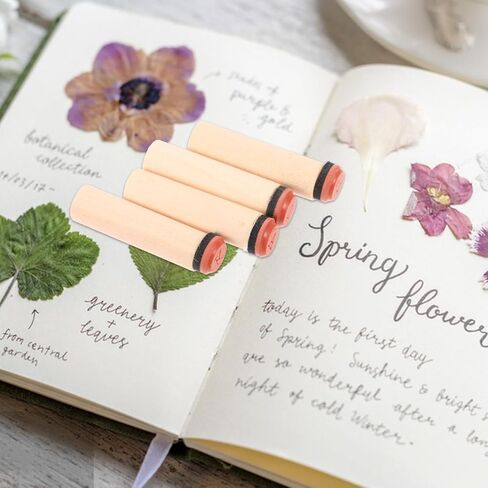 shades of
purple &
gold
botanical
collection
greenery +
leaves
from central
garden
Spring
flower
today is the first day
of Spring! Sunshine & bright
are so wonderful after a long
night of cold Winter.